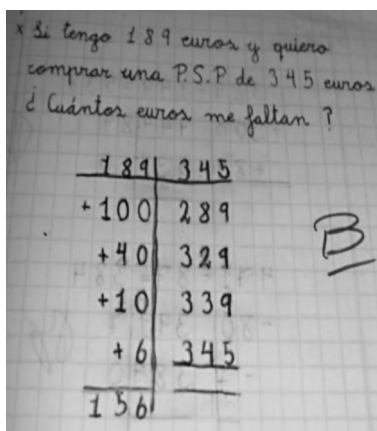 x Si tengo 189 euros y quiero
comprar una P.S.P de 345 euros
¿ Cuántos euros me faltan ?
189 | 345
+100 | 289
+40 | 329
+10 | 339
+6 | 345
156
B